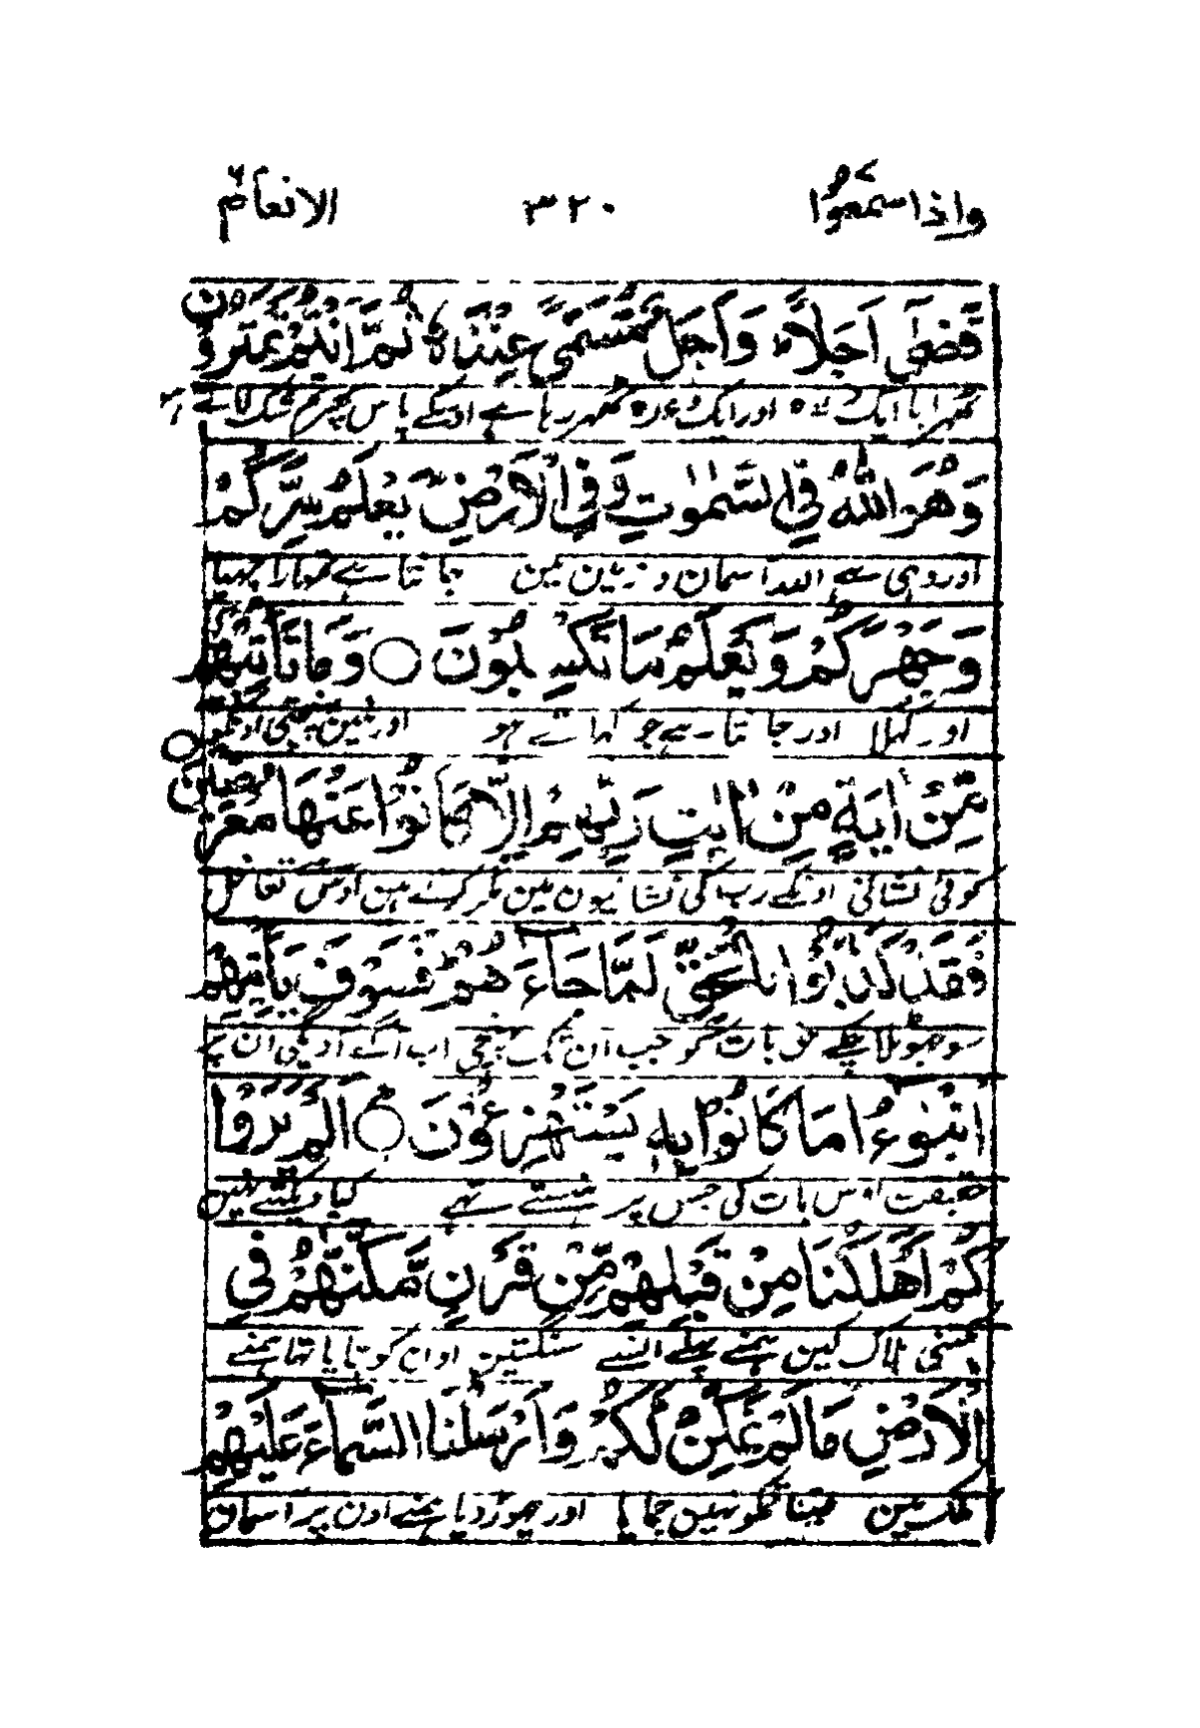 واذا سمعوا ۷ ۳۲۰ الانعام ۶
قَضٰٓى اَجَلًا ؕ وَاَجَلٌ مُّسَمًّى عِنْدَهٗ ثُمَّ اَنْتُمْ تَمْتَرُوْنَ
ٹھرایا ایک اور ایک ٹھہر رہا ہے اوسکے پاس پھر تم شک لاتے
وَهُوَ اللّٰهُ فِي السَّمٰوٰتِ وَفِي الْاَرْضِ ؕ يَعْلَمُ سِرَّكُمْ
اور وہی ہے اللہ آسمان و زمین مین جانتا ہے تمہارا چھپا
وَجَهْرَكُمْ وَيَعْلَمُ مَا تَكْسِبُوْنَ ○ وَمَا تَاْتِيْهِمْ
اور کھلا اور جانتا ہے جو کماتے ہو اور نہین پہنچی اونکو
مِّنْ اٰيَةٍ مِّنْ اٰيٰتِ رَبِّهِمْ اِلَّا كَانُوْا عَنْهَا مُعْرِضِيْنَ ○
کوئی نشانی اونکے رب کی نشانیون مین مگر کرتے ہین اوس تغافل
فَقَدْ كَذَّبُوْا بِالْحَقِّ لَمَّا جَآءَهُمْ فَسَوْفَ يَاْتِيْهِمْ
سو جھوٹلا چکے حق بات کو جب ان تک پہنچی اب آگے آویگی ان پر
اَنْۢبٰٓؤُا مَا كَانُوْا بِهٖ يَسْتَهْزِءُوْنَ ○ اَلَمْ يَرَوْا
حقیقت اوس بات کی جس پر ہنستے تھے کیا دیکھتے نہین
كَمْ اَهْلَكْنَا مِنْ قَبْلِهِمْ مِّنْ قَرْنٍ مَّكَّنّٰهُمْ فِي
کتنی ہلاک کین ہمنے پہلے انسے سنگتین اون کو جمایا تھا ہمنے
الْاَرْضِ مَا لَمْ نُمَكِّنْ لَّكُمْ وَاَرْسَلْنَا السَّمَآءَ عَلَيْهِمْ
ملک مین جتنا تمکو نہین جمایا اور چھوڑ دیا ہمنے اون پر آسمان